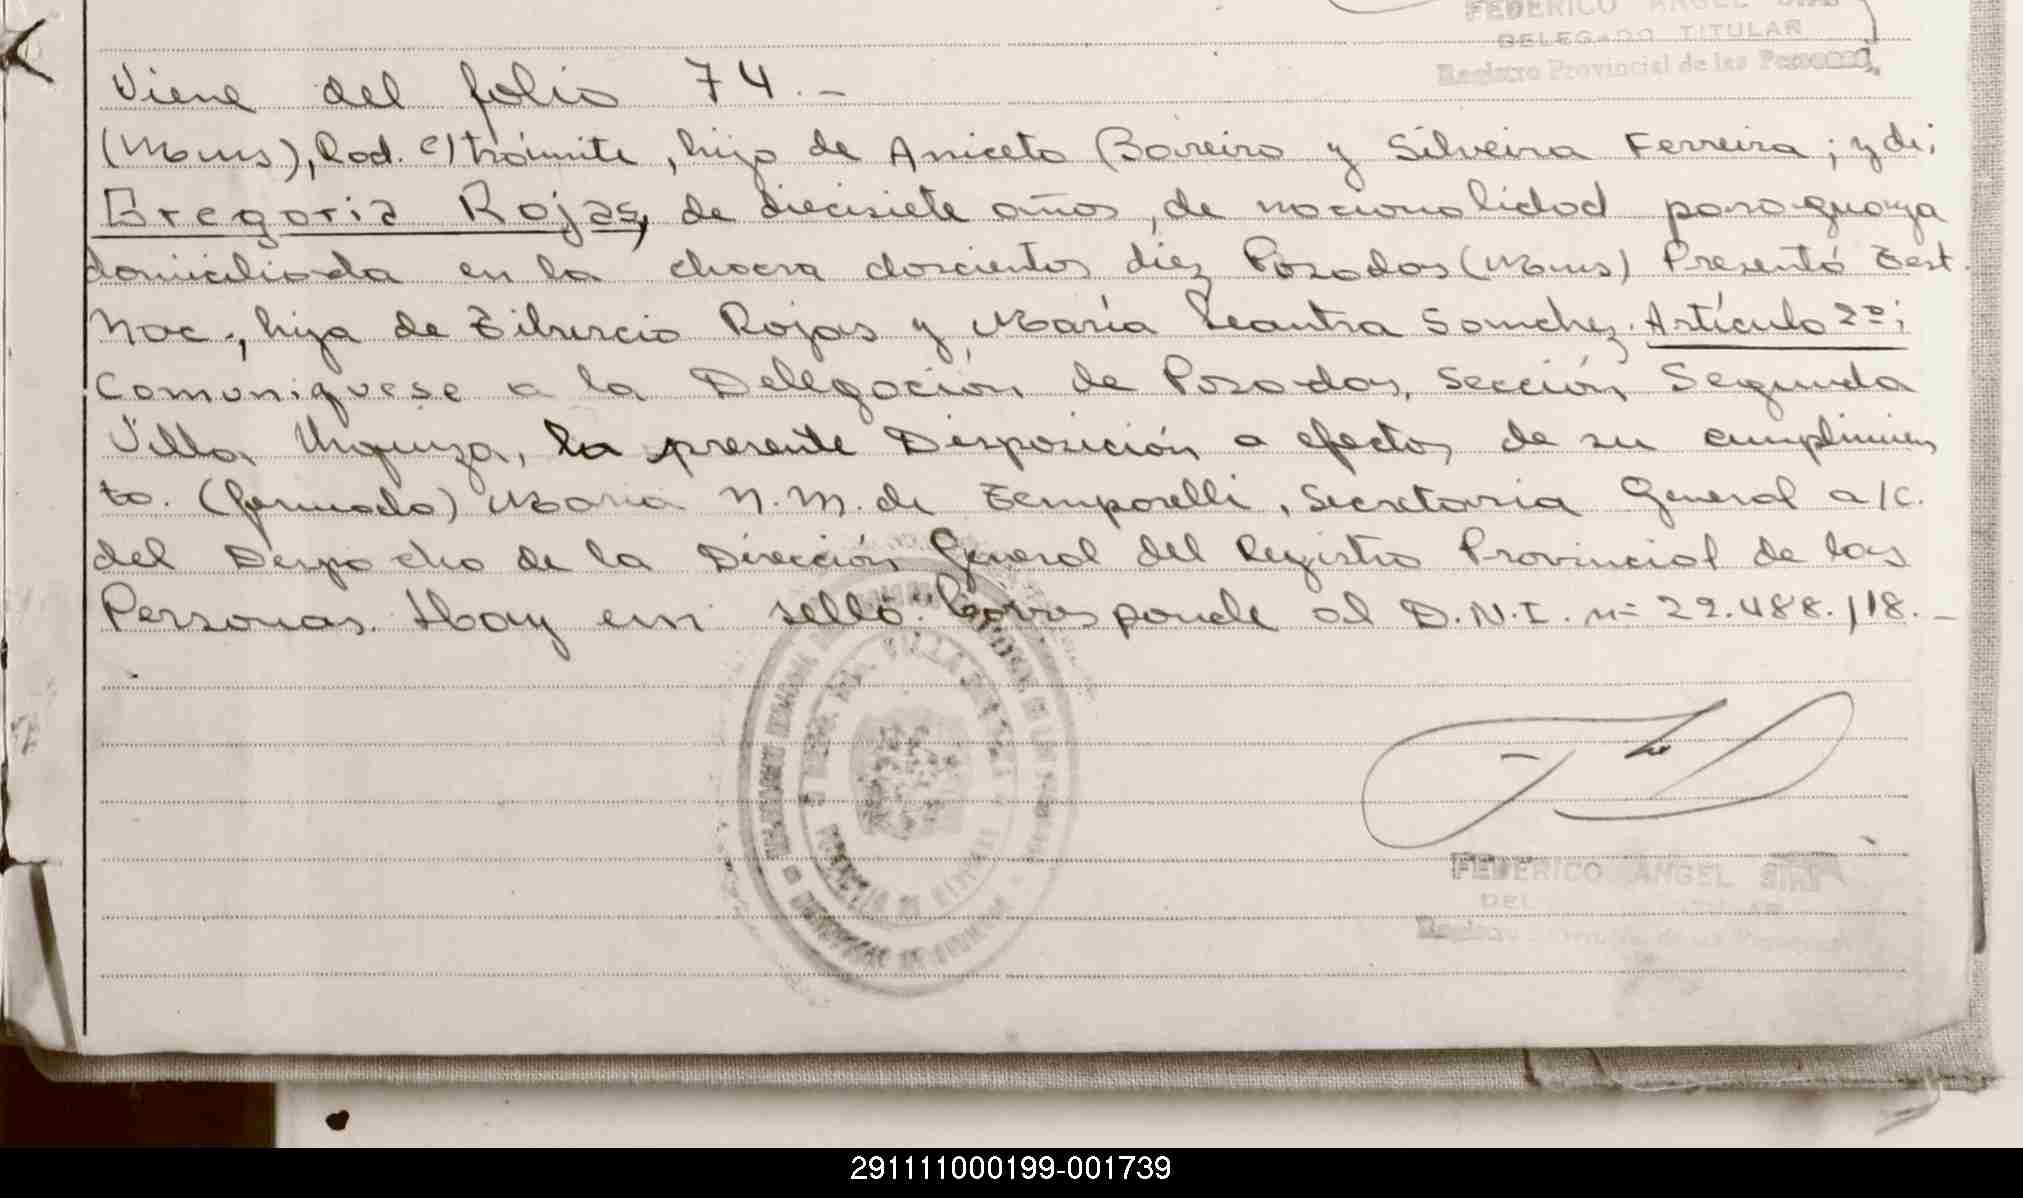 FEDERICO ANGEL
DELEGADO TITULAR
Registro Provincial de las Personas
Viene del folio 74.-
(Mnes), Rad. e/trámite, hijo de Aniceto Boreiro y Silveira Ferreira; y de:
Gregoria Rojas, de diecisiete años, de nacionalidad paraguaya
domiciliada en la chacra doscientos diez Posadas (Mnes) Presentó Test.
Nac., hija de Tiburcio Rojas y María Leantra Sanchez. Artículo 2º:
Comuniquese a la Delegación de Posadas, Sección Segunda
Villa Urquiza, la presente Disposición a efectos de su cumplimien
to. (firmado) Maria N.M. de Temporelli, Secretaria General a/c.
del Despacho de la Dirección General del Registro Provincial de las
Personas. Hay un sello. Corresponde al D.N.I. nº 22.488.118.-
FEDERICO ANGEL
291111000199-001739